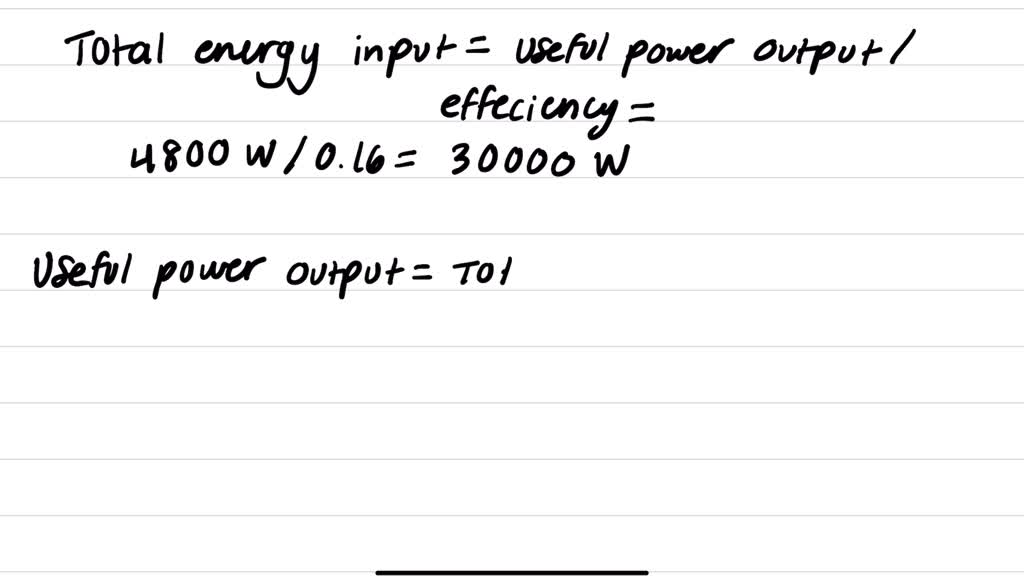 Total energy input = useful power output /
effeciency =
4800 W / 0.16 = 30000 W
Useful power output = Tot